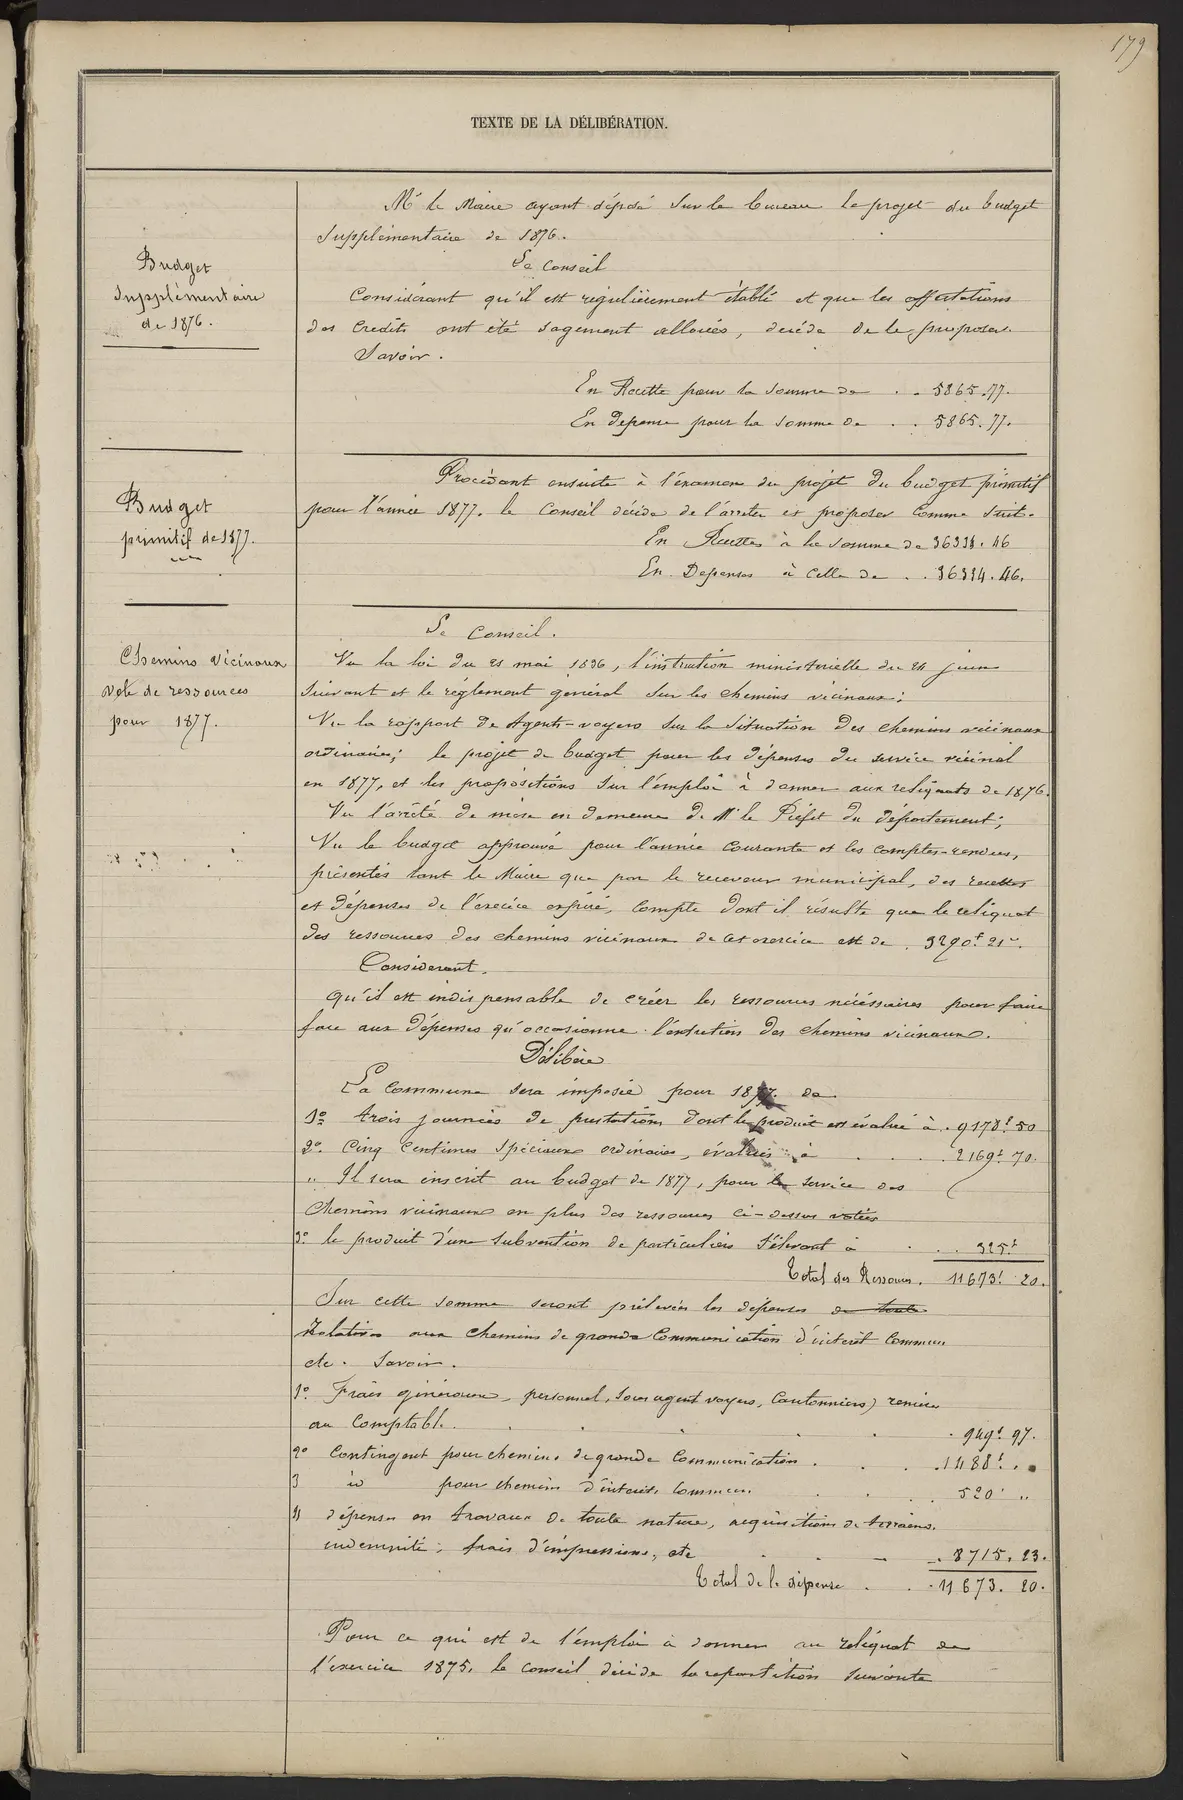 179
TEXTE DE LA DÉLIBÉRATION.
Mr le Maire ayant déposé sur le bureau le projet du budget
supplémentaire de 1876.
Budget
supplémentaire
de 1876.
Le Conseil
Considérant qu'il est régulièrement établi et que les affectations
des crédits ont été sagement alloués, décide de le proposer.
Savoir.
En Recette pour la somme de . . 5865.77.
En Depense pour la somme de . . 5865.77.
Budget
primitif de 1877.
Procédant ensuite à l'examen du projet du budget primitif
pour l'année 1877. le Conseil décide de l'arreter et proposer comme suit.
En Recettes à la somme de 36334.46
En Depenses à celle de . . 36334.46.
Chemins vicinaux
vote de ressources
pour 1877.
Le Conseil.
Vu la loi du 21 mai 1836, l'instruction ministérielle du 24 juin
suivant et le réglement général sur les chemins vicinaux;
Vu la rapport de Agents-voyers sur la situation des chemins vicinaux
ordinaires; le projet de budget pour les dépenses du service vicinal
en 1877, et les propositions sur l'emploi à donner aux reliquats de 1876.
Vu l'arrêté de mise en demeure de Mr le Préfet du département;
Vu le budget approuvé pour l'année courante et les comptes-rendus,
présentés tant le Maire que par le receveur municipal, des recettes
et dépenses de l'exercice expiré, compte dont il résulte que le reliquat
des ressources des chemins vicinaux de cet exercice est de . 3290f 21c.
Considerant.
qu'il est indispensable de créer les ressources nécéssaires pour faire
face aux dépenses qu'occasionne l'entretien des chemins vicinaux.
Délibère
La commune sera imposée pour 1877. de
1o trois journées de prestations dont le produit est évalué à . 9178f 50
2o. Cinq centimes spéciaux ordinaires, évalués à . . . 2169f 70.
" Il sera inscrit au budget de 1877, pour le service des
chemins vicinaux en plus des ressources ci-dessus votées
3o le produit d'une subvention de particuliers s'élevant à . . . 325f
Total des Ressources . 11673f 20.
Sur cette somme seront prélevées les dépenses de toute
relatives aux chemins de grande Communication d'intérêt commun
etc. savoir.
1o. Frais généraux, personnel, sous agent voyers, Cantonniers) remise
au Comptabl. . . . . 949f 97.
2o Contingent pour chemins de grande Communication . . . 1488f .
3 id pour chemins d'intérêt commun . . . 520 "
4 dépenses en travaux de toute nature, acquisitions de terrains.
indemnité; frais d'impressions, etc . . . 8715.23.
Total de la dépense . . 11673.20.
Pour ce qui est de l'emploi à donner au reliquat de
l'exercice 1875. le conseil décide la repartition suivante